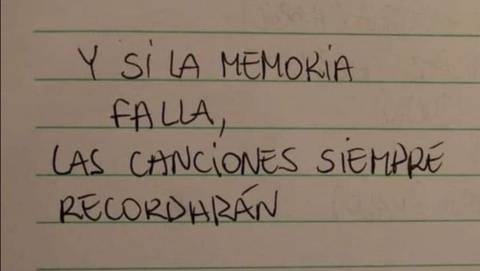 Y SI LA MEMORIA
FALLA,
LAS CANCIONES SIEMPRE
RECORDARÁN